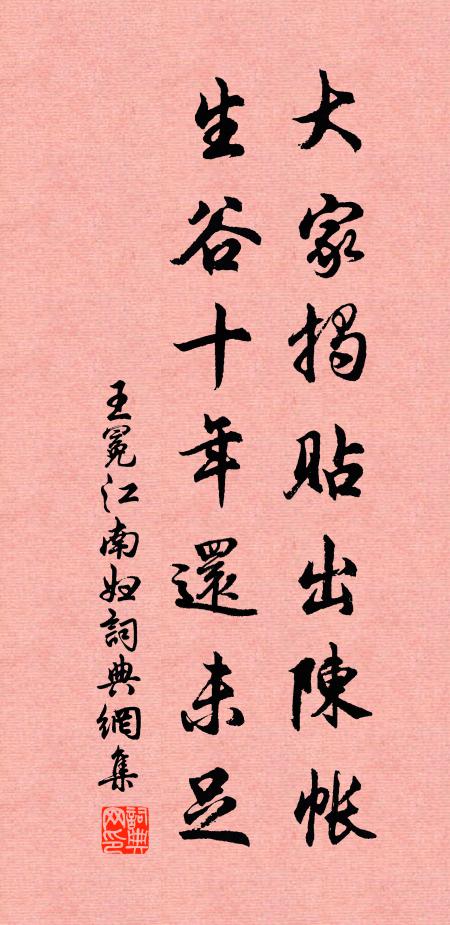 大家揭貼出陳帳
生谷十年還未足
王冕江南妇詞典網集
詞典网印